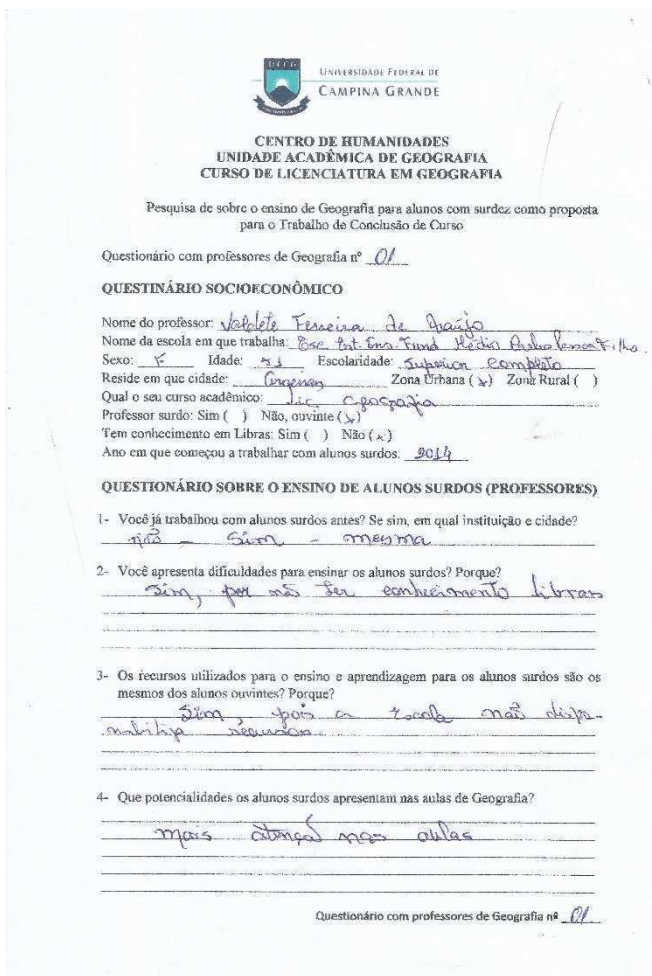 UFCG
UNIVERSIDADE FEDERAL DE
CAMPINA GRANDE
CENTRO DE HUMANIDADES
UNIDADE ACADÊMICA DE GEOGRAFIA
CURSO DE LICENCIATURA EM GEOGRAFIA
Pesquisa de sobre o ensino de Geografia para alunos com surdez como proposta
para o Trabalho de Conclusão de Curso
Questionário com professores de Geografia nº 01
QUESTINÁRIO SOCIOECONÔMICO
Nome do professor: Valdete Ferreira de Araújo
Nome da escola em que trabalha: Esc. Est. Ens. Fund Médio Filho
Sexo: F Idade: 51 Escolaridade: Superior completo
Reside em que cidade: Zona Urbana (x) Zona Rural ( )
Qual o seu curso acadêmico: Lic Geografia
Professor surdo: Sim ( ) Não, ouvinte (x)
Tem conhecimento em Libras: Sim ( ) Não (x)
Ano em que começou a trabalhar com alunos surdos: 2014
QUESTIONÁRIO SOBRE O ENSINO DE ALUNOS SURDOS (PROFESSORES)
1- Você já trabalhou com alunos surdos antes? Se sim, em qual instituição e cidade?
não - Sim - mesma
2- Você apresenta dificuldades para ensinar os alunos surdos? Porque?
Sim, por não ter conhecimento Libras
3- Os recursos utilizados para o ensino e aprendizagem para os alunos surdos são os
mesmos dos alunos ouvintes? Porque?
Sim, pois a Escola não dispo-
nibiliza recursos.
4- Que potencialidades os alunos surdos apresentam nas aulas de Geografia?
mais atençã nas aulas
Questionário com professores de Geografia nº 01